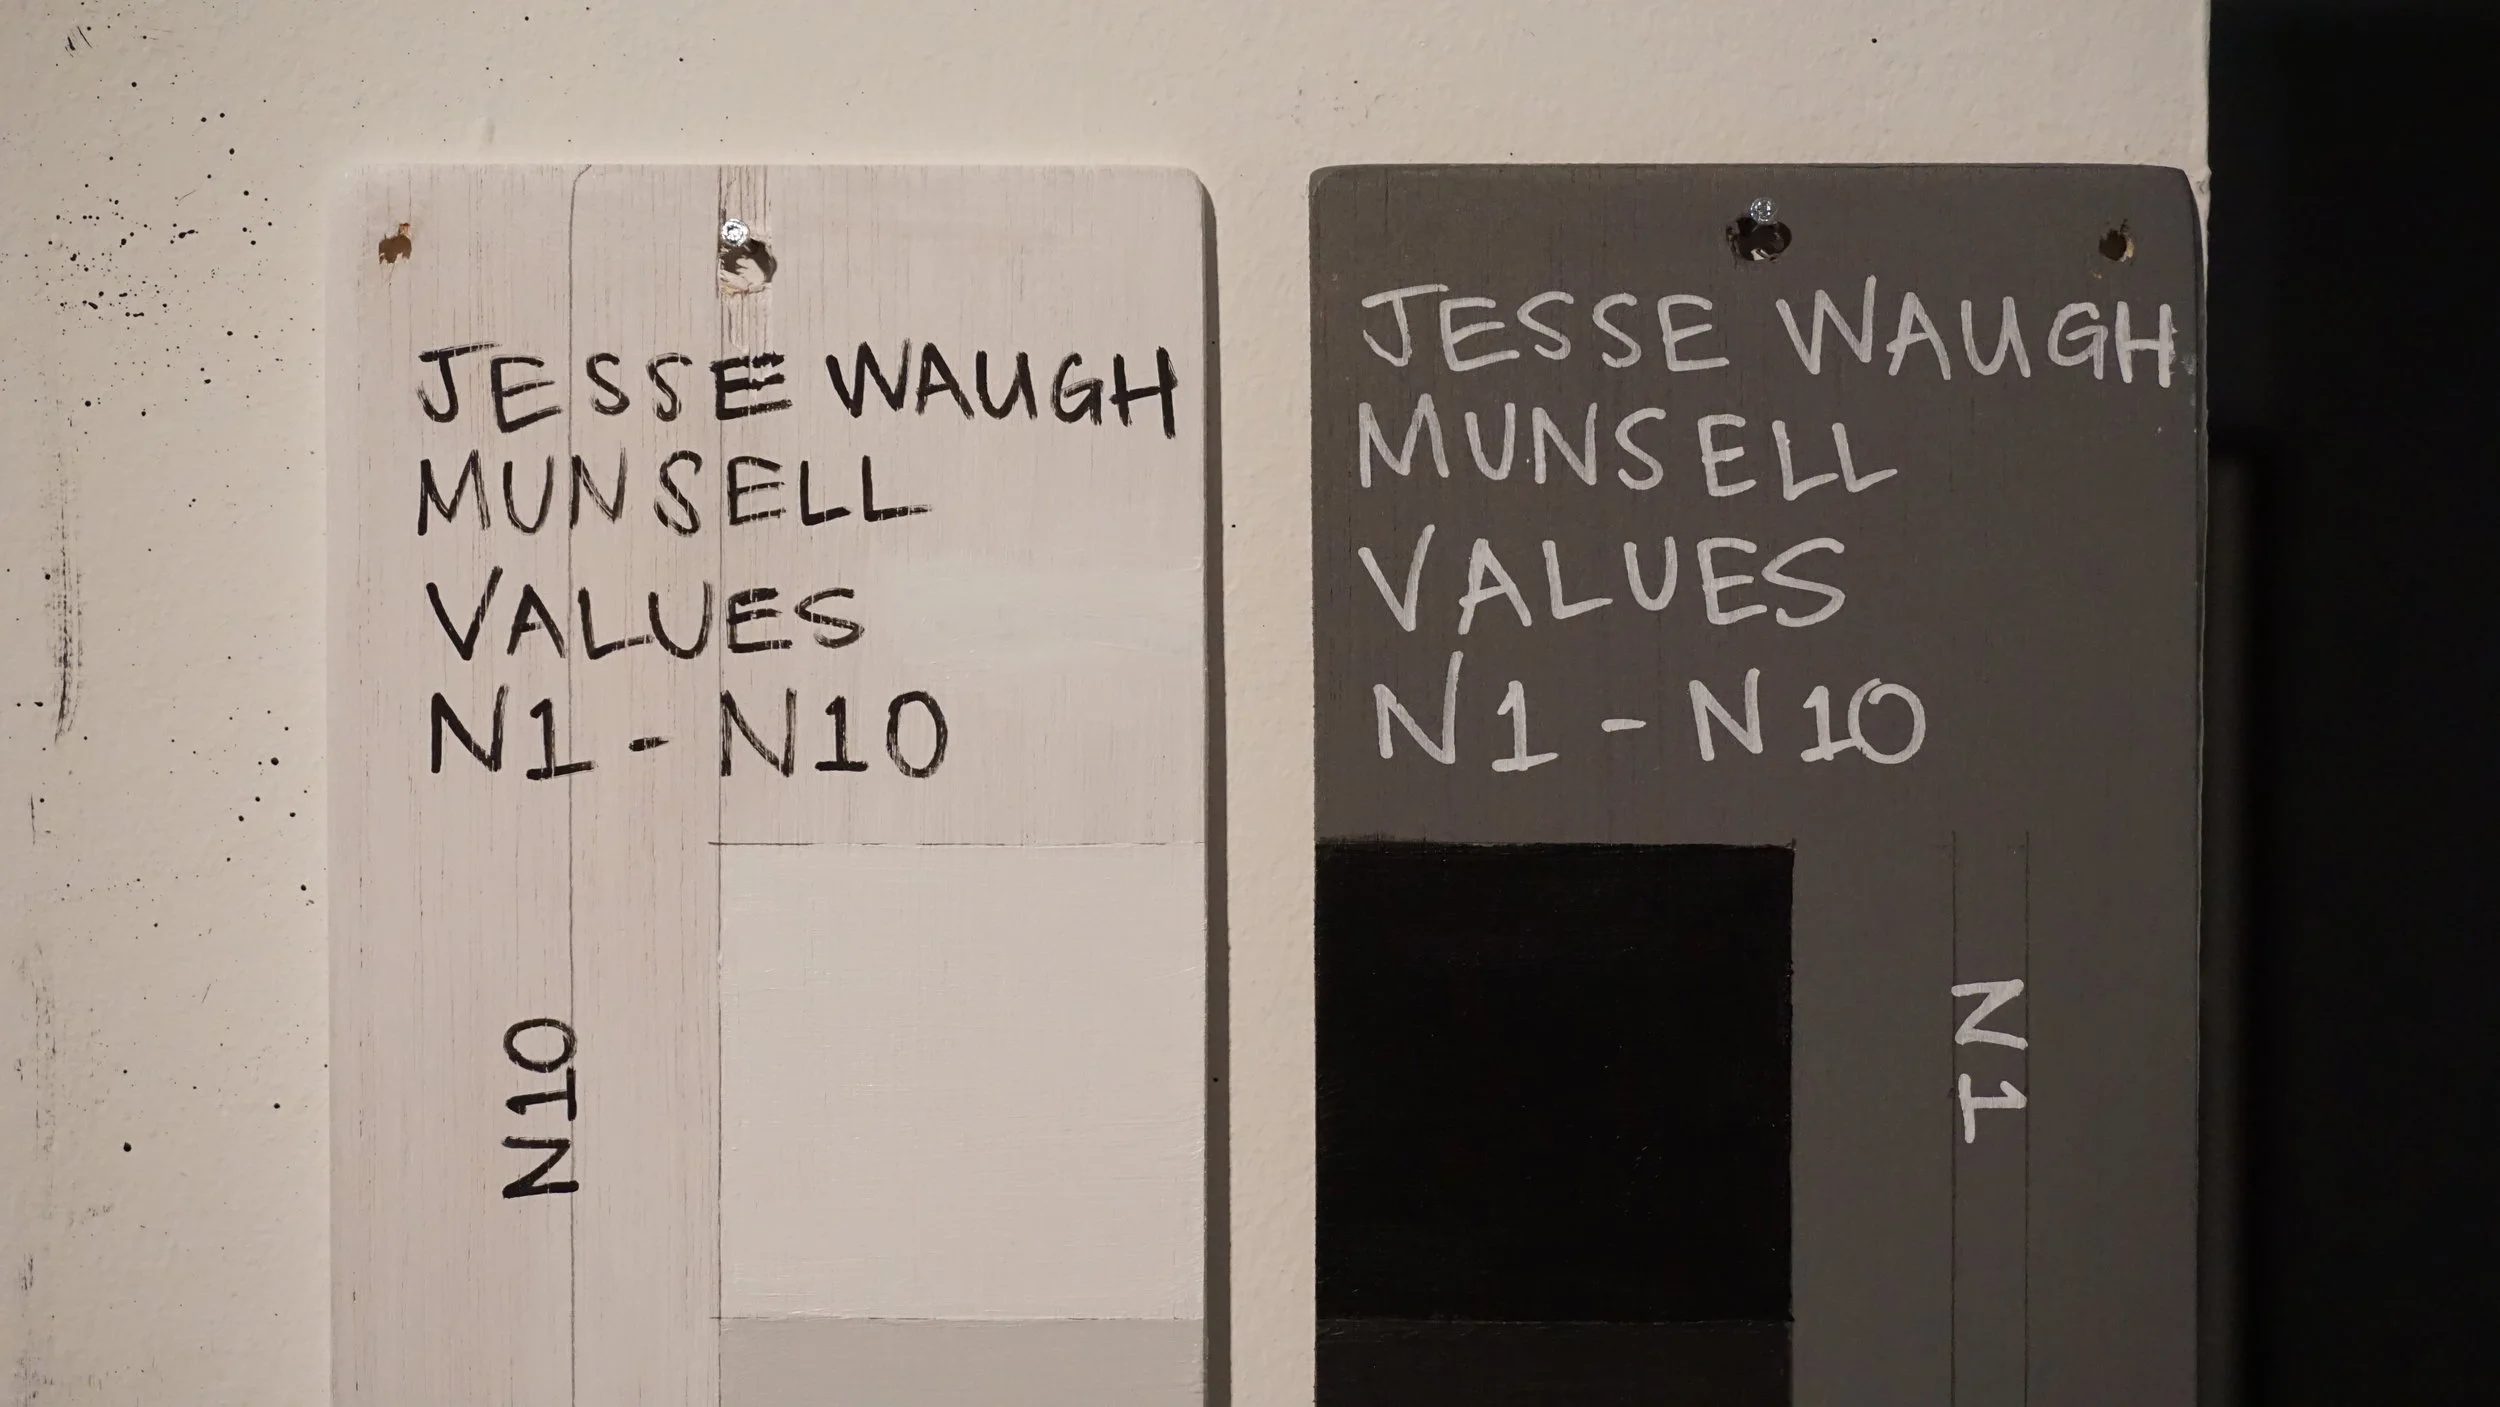 JESSE WAUGH
MUNSELL
VALUES
N1 - N10
N10
JESSE WAUGH
MUNSELL
VALUES
N1 - N10
N1